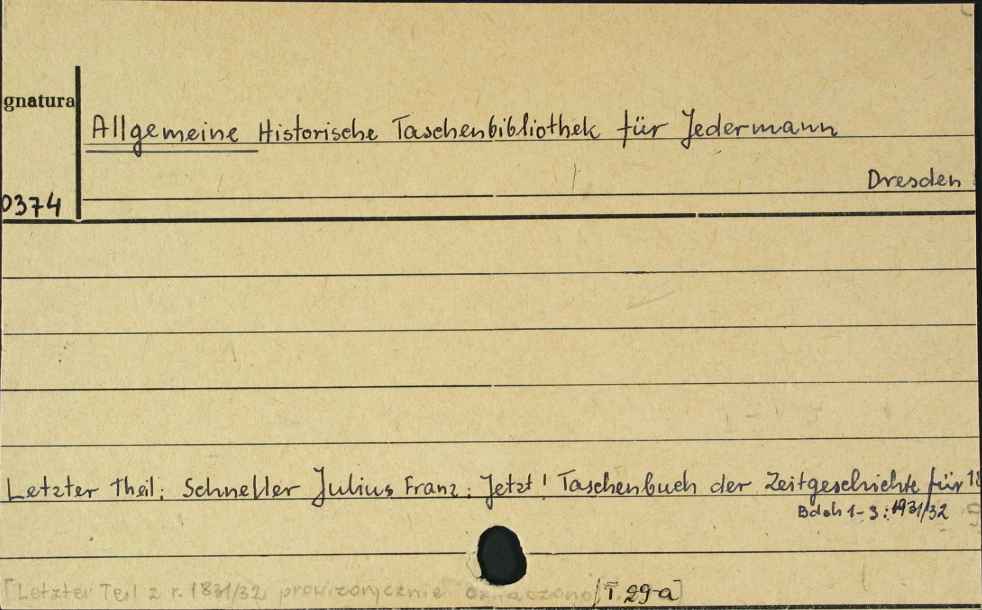 gnatura
Allgemeine Historische Taschenbibliothek für Jedermann
Dresden
0374
Letzter Theil: Schneller Julius Franz: Jetzt! Taschenbuch der Zeitgeschichte für 18
Bdch 1-3: 1931/32
[Letzter Teil z r. 1831/32 prowizorycznie oznaczono T. 29-a]